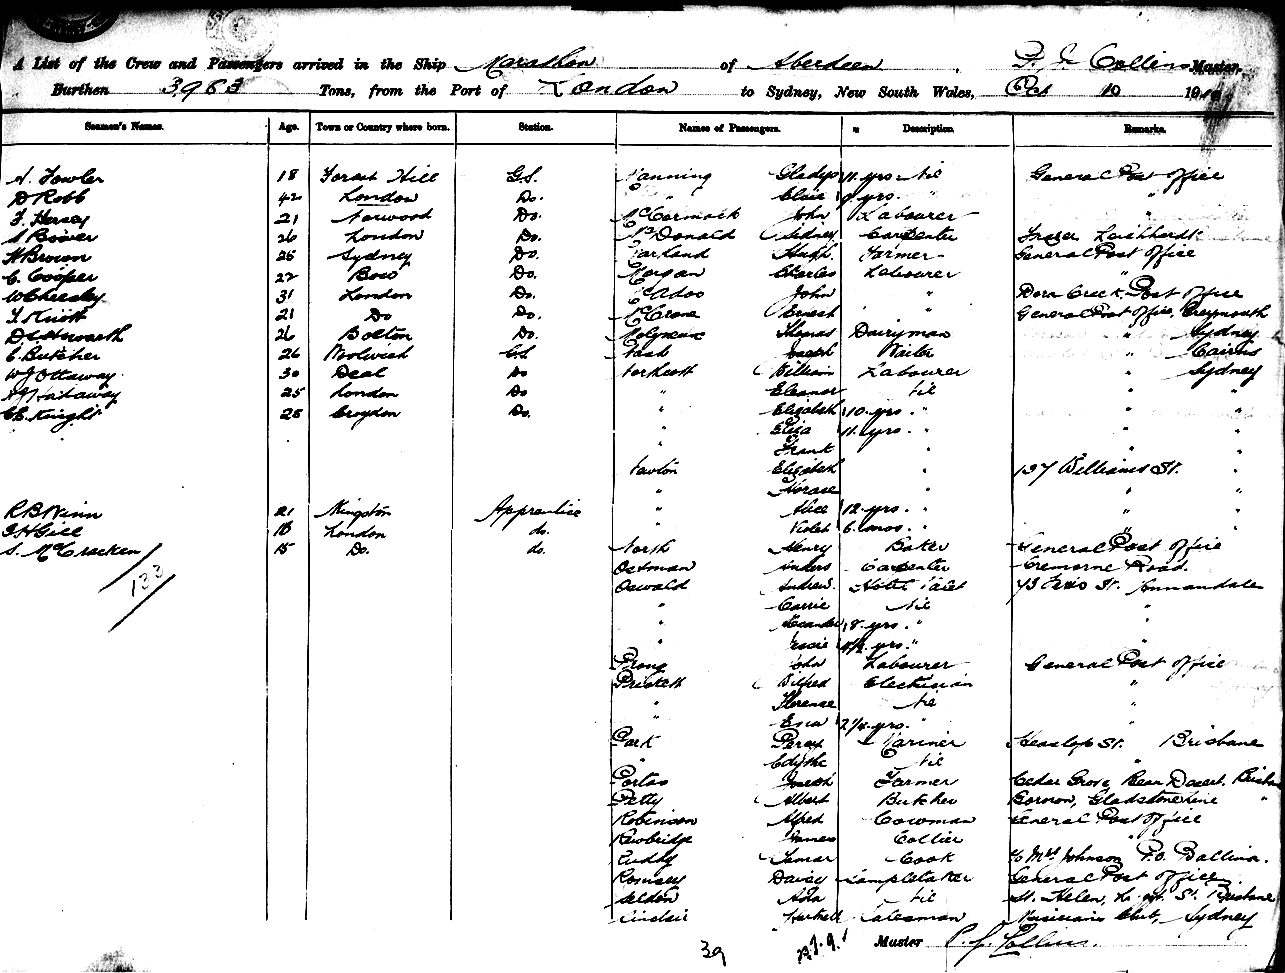 A List of the Crew and Passengers arrived in the Ship Marathon of Aberdeen, P. J. Collins Master,
Burthen 3963 Tons, from the Port of London to Sydney, New South Wales, Oct 10 191
Seamen's Names. Age. Town or Country where born. Station. Names of Passengers. Description. Remarks.
A. Fowler 18 Forest Hill G.S. Manning Gladys 11 yrs. Nil General Post Office
D Robb 42 London Do. " Clair yrs. " "
F. Hersey 21 Norwood Do. McCormack John Labourer "
26 London Do. McDonald Sidney Carpenter Leichhardt
H Brown 25 Sydney Do. Hugh Farmer General Post Office
C. Cooper 22 Bow Do. Morgan Charles Labourer "
W Cheesley 31 London Do. McAdoo John " Dora Creek Post Office
21 Do Do. McCrone Ernest " General Post Office, Greymouth
26 Bolton Do. Molyneux Thomas Dairyman " Sydney
C. Butcher 26 Woolwich G.S. Nash Joseph Waiter " Cairns
W J Ottaway 30 Deal Do Northcott William Labourer " Sydney
Hathaway 25 London Do " Eleanor Nil " "
C E. Knight 28 Croydon Do. " Elizabeth 10 yrs. " " "
" Eliza 11 yrs. " " "
" Frank " " "
Elizabeth " 137 Williams St. "
" Horace " " "
R B Winn 21 Kingston Apprentice " Alice 12 yrs. " " "
G H Gill 18 London do. " Violet 6 mos. " " "
S. McCracken 15 Do. do. North Henry Baker General Post Office
133
Ostman Anders Carpenter Cremorne Road.
Oswald Andrew Hotel Valet St. Annandale
" Carrie Nil "
" Alexander 8 yrs. " "
" Jessie yrs. " "
John Labourer General Post Office
Prickett Wilfred Electrician "
" Florence Nil "
" 2 1/4 yrs. "
Park Percy Mariner Heaslop St. Brisbane
" Edythe Nil "
Portas Joseph Farmer Cedar Grove,
Petty Albert Butcher Gladstone Line "
Robinson Alfred Cowman General Post Office
Rewbridge James Collier "
Ruddy Tamar Cook c/o Mrs Johnson P.O. Ballina.
Romsey Daisy General Post Office
Seldon Ada Nil St. Helen, St. Brisbane
Sinclair Salesman Musicians Club, Sydney
39 Master P. J. Collins.